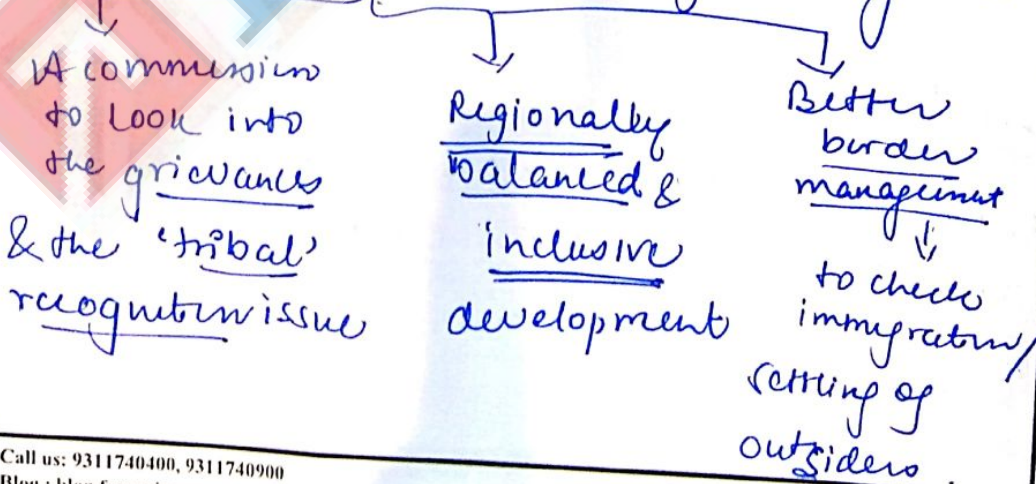 A commission
to look into
the grievances
& the 'tribal'
recognition issue
Regionally
balanced &
inclusive
development
Better
border
management
to check
immigration/
settling of
outsiders
Call us: 9311740400, 9311740900